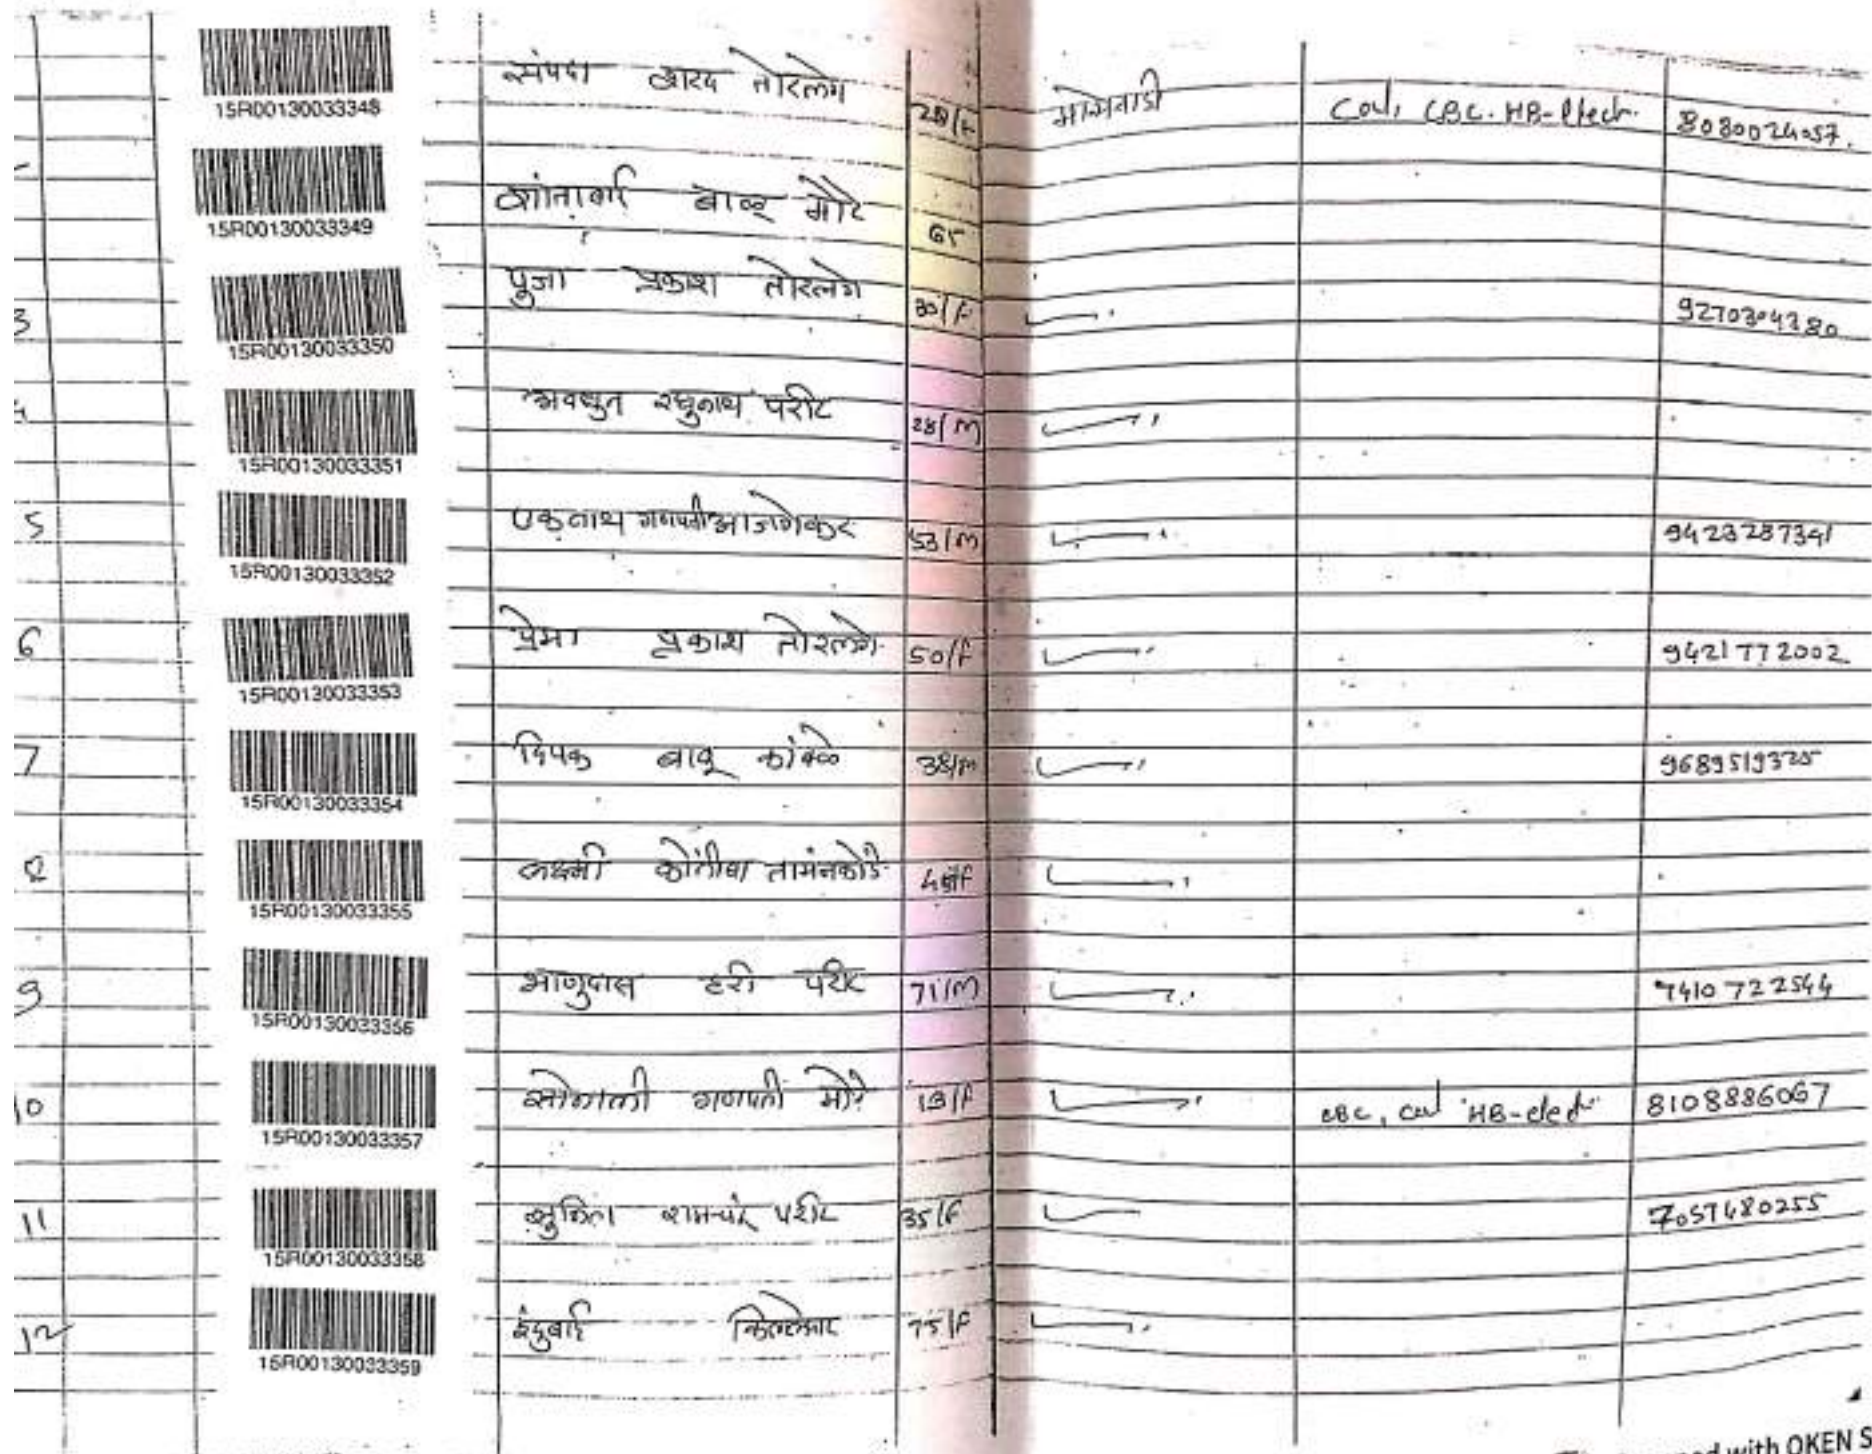 15R00130033348 संपदा शरद तोरलगे 28/F Cal, CBC. HB-Elech. 8080024057.
15R00130033349 शांताबाई बाळू मोरे 65
3 15R00130033350 पुजा प्रकाश तोरलगे 30/F —" 9270304380
15R00130033351 अवधुत रघुनाथ परीट 28/M —"
5 15R00130033352 एकनाथ गणपती आजगेकर 53/M —" 9423287341
6 15R00130033353 प्रेमा प्रकाश तोरलगे 50/F —" 9421772002
7 15R00130033354 दिपक बाबू कांबळे 38/M —" 9689519325
8 15R00130033355 लक्ष्मी —"
9 15R00130033356 भाणुदास हरी परीट 71/M —" 7410722544
10 15R00130033357 सोनाली गणपती मोरे 19/F —" CBC, Cal HB-elech 8108886067
11 15R00130033358 सुनिता रामचंद्र परीट 35/F — 7057480255
12 15R00130033359 इंदुबाई 75/F —"
with OKEN S